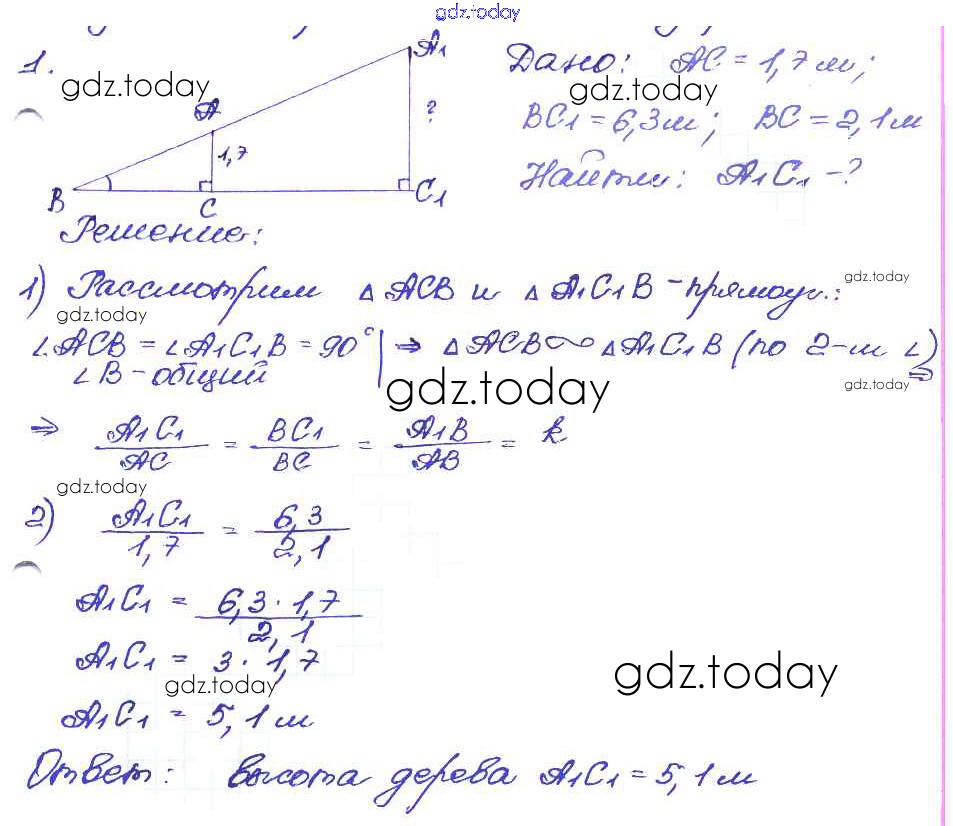 gdz.today
1.
A₁
Дано: AC = 1,7 м;
gdz.today
gdz.today
A
?
BC₁ = 6,3 м; BC = 2,1 м
1,7
Найти: A₁C₁ - ?
B C C₁
Решение:
1) Рассмотрим △ ACB и △ A₁C₁B - прямоуг.:
gdz.today
gdz.today
∠ACB = ∠A₁C₁B = 90° | ⇒ △ ACB ∾ △ A₁C₁B (по 2-м ∠) ⇒
∠B - общий
gdz.today
gdz.today
⇒ A₁C₁/AC = BC₁/BC = A₁B/AB = k
gdz.today
2) A₁C₁/1,7 = 6,3/2,1
A₁C₁ = 6,3 · 1,7/2,1
A₁C₁ = 3 · 1,7
gdz.today
gdz.today
A₁C₁ = 5,1 м
Ответ: высота дерева A₁C₁ = 5,1 м